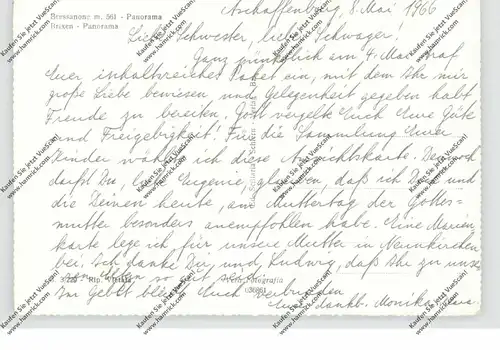 Bressanone m. 561 - Panorama
Brixen - Panorama
Aschaffenburg, 8. Mai 1966
Liebe Schwester, lieber Schwager!
Ganz pünktlich am 4. Mai traf
Euer inhaltsreiches Paket ein, mit dem Ihr mir
große Liebe bewiesen und Gelegenheit gegeben habt
Freude zu bereiten. Gott vergelte Euch Eure Güte
und Freigebigkeit! Für die Sammlung Eurer
Kinder wählte ich diese Ansichtskarte. Dennoch
darfst Du, liebe Eugenie, glauben, daß ich Dich und
die Deinen heute, am Muttertag der Gottes-
mutter besonders anempfohlen habe. Eine Marien-
karte lege ich für unsere Mutter in Neunkirchen
bei. Ich danke Dir und Ludwig, daß Ihr zu unseren
so seid.
Im Gebet bleibt Euch verbunden
Eure dankb. Monika
Rip. Vietata
Vera Fotografia
Kaufen Sie jetzt VueScan!
www.hamrick.com